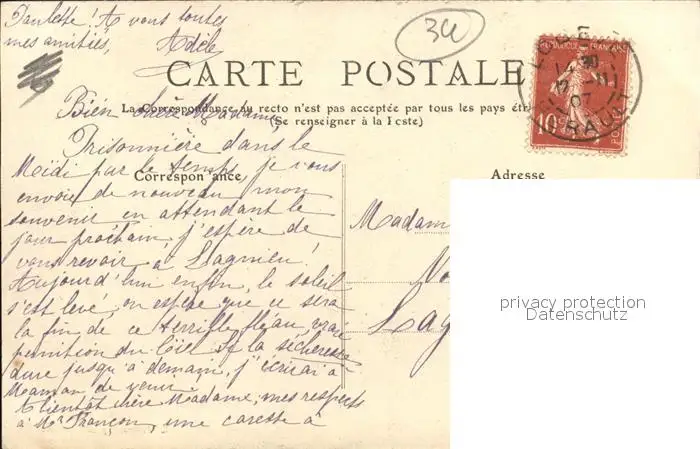 Paulette! A vous toutes
mes amitiés,
Adèle
34
CARTE POSTALE
La Correspondance au recto n'est pas acceptée par tous les pays étr
(Se renseigner à la Poste)
Bien chère Madame,
Prisonnière dans le
Midi par le temps je vous
envoie de nouveau mon
souvenir en attendant le
jour prochain, j'espère de
vous revoir à Lagnieu!
Aujourd'hui enfin, le soleil
s'est levé, on espère que ce sera
la fin de ce terrible fléau, vraie
punition du Ciel. Si la sécheresse
dure jusqu'à demain, j'écrirai à
Maman de venir.
A bientôt chère Madame, mes respects
à Mr Françon, une caresse à
Correspondance
Adresse
Madam
Lag
REPUBLIQUE FRANÇAISE
10c
POSTES
07
HERAULT
privacy protection
Datenschutz